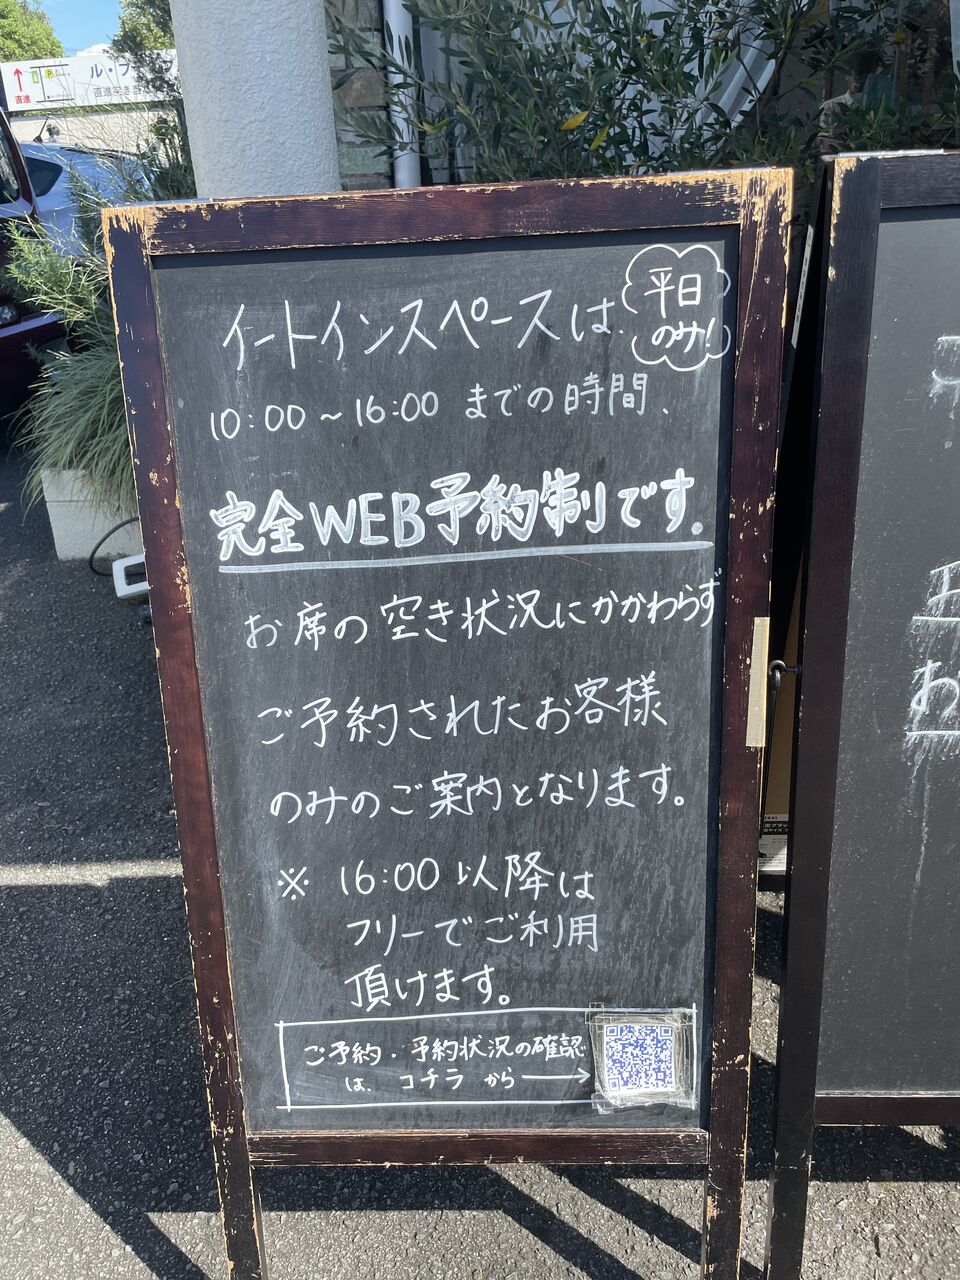 イートインスペースは、
平日
のみ!
10:00～16:00 までの時間、
完全WEB予約制です。
お席の空き状況にかかわらず
ご予約されたお客様
のみのご案内となります。
※ 16:00 以降は
フリーでご利用
頂けます。
ご予約・予約状況の確認
は、コチラ から→
直進
ル・フ